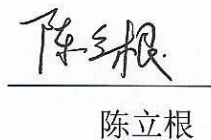 陈立根
陈立根